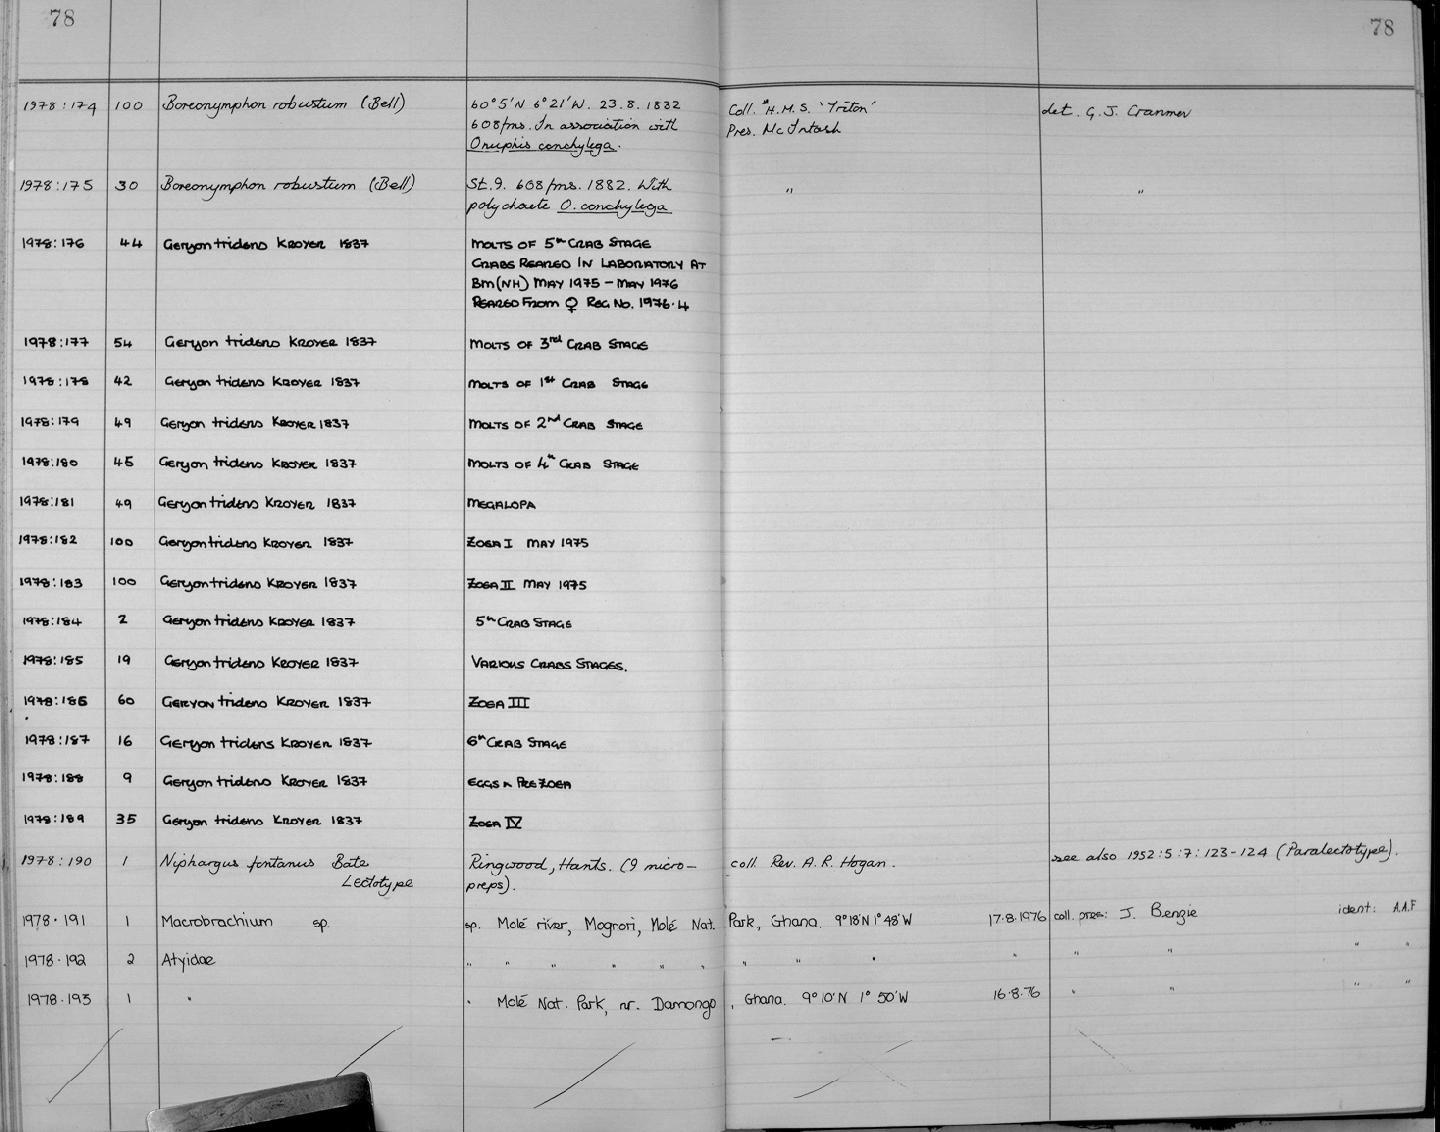 78
78
1978:174 100 Boreonymphon robustum (Bell) 60°5'N 6°21'W. 23.8.1832 Coll. "H.M.S. 'Triton' det. G. J. Cranmer
608fms. In association with Pres. McIntosh
Onuphis conchylega.
1978:175 30 Boreonymphon robustum (Bell) St.9. 608fms. 1882. With " "
polychaete O. conchylega
1978:176 44 Geryon tridens KROYER 1837 MOLTS OF 5th CRAB STAGE
CRABS REARED IN LABORATORY AT
BM(NH) MAY 1975 - MAY 1976
REARED FROM ♀ REG NO. 1976.4
1978:177 54 Geryon tridens KROYER 1837 MOLTS OF 3rd CRAB STAGE
1978:178 42 Geryon tridens KROYER 1837 MOLTS OF 1st CRAB STAGE
1978:179 49 Geryon tridens KROYER 1837 MOLTS OF 2nd CRAB STAGE
1978:180 45 Geryon tridens KROYER 1837 MOLTS OF 4th CRAB STAGE
1978:181 49 Geryon tridens KROYER 1837 MEGALOPA
1978:182 100 Geryon tridens KROYER 1837 ZOEA I MAY 1975
1978:183 100 Geryon tridens KROYER 1837 ZOEA II MAY 1975
1978:184 2 Geryon tridens KROYER 1837 5th CRAB STAGE
1978:185 19 Geryon tridens KROYER 1837 VARIOUS CRABS STAGES.
1978:186 60 GERYON tridens KROYER 1837 ZOEA III
1978:187 16 Geryon tridens KROYER 1837 6th CRAB STAGE
1978:188 9 Geryon tridens KROYER 1837 EGGS & PREZOEA
1978:189 35 Geryon tridens KROYER 1837 ZOEA IV
1978:190 1 Niphargus fontanus Bate Ringwood, Hants. (9 micro- coll. Rev. A. R. Hogan. see also 1952:5:7:123-124 (Paralectotype).
Lectotype preps).
1978.191 1 Macrobrachium sp. sp. Molé river, Mogrori, Molé Nat. Park, Ghana. 9°18'N 1°48'W 17.8.1976 coll. pres: J. Benzie ident: A.A.F
1978.192 2 Atyidae " " " " " " " " " " " " " "
1978.193 1 " " Molé Nat. Park, nr. Damongo, Ghana. 9°10'N 1°50'W 16.8.76 " " " "